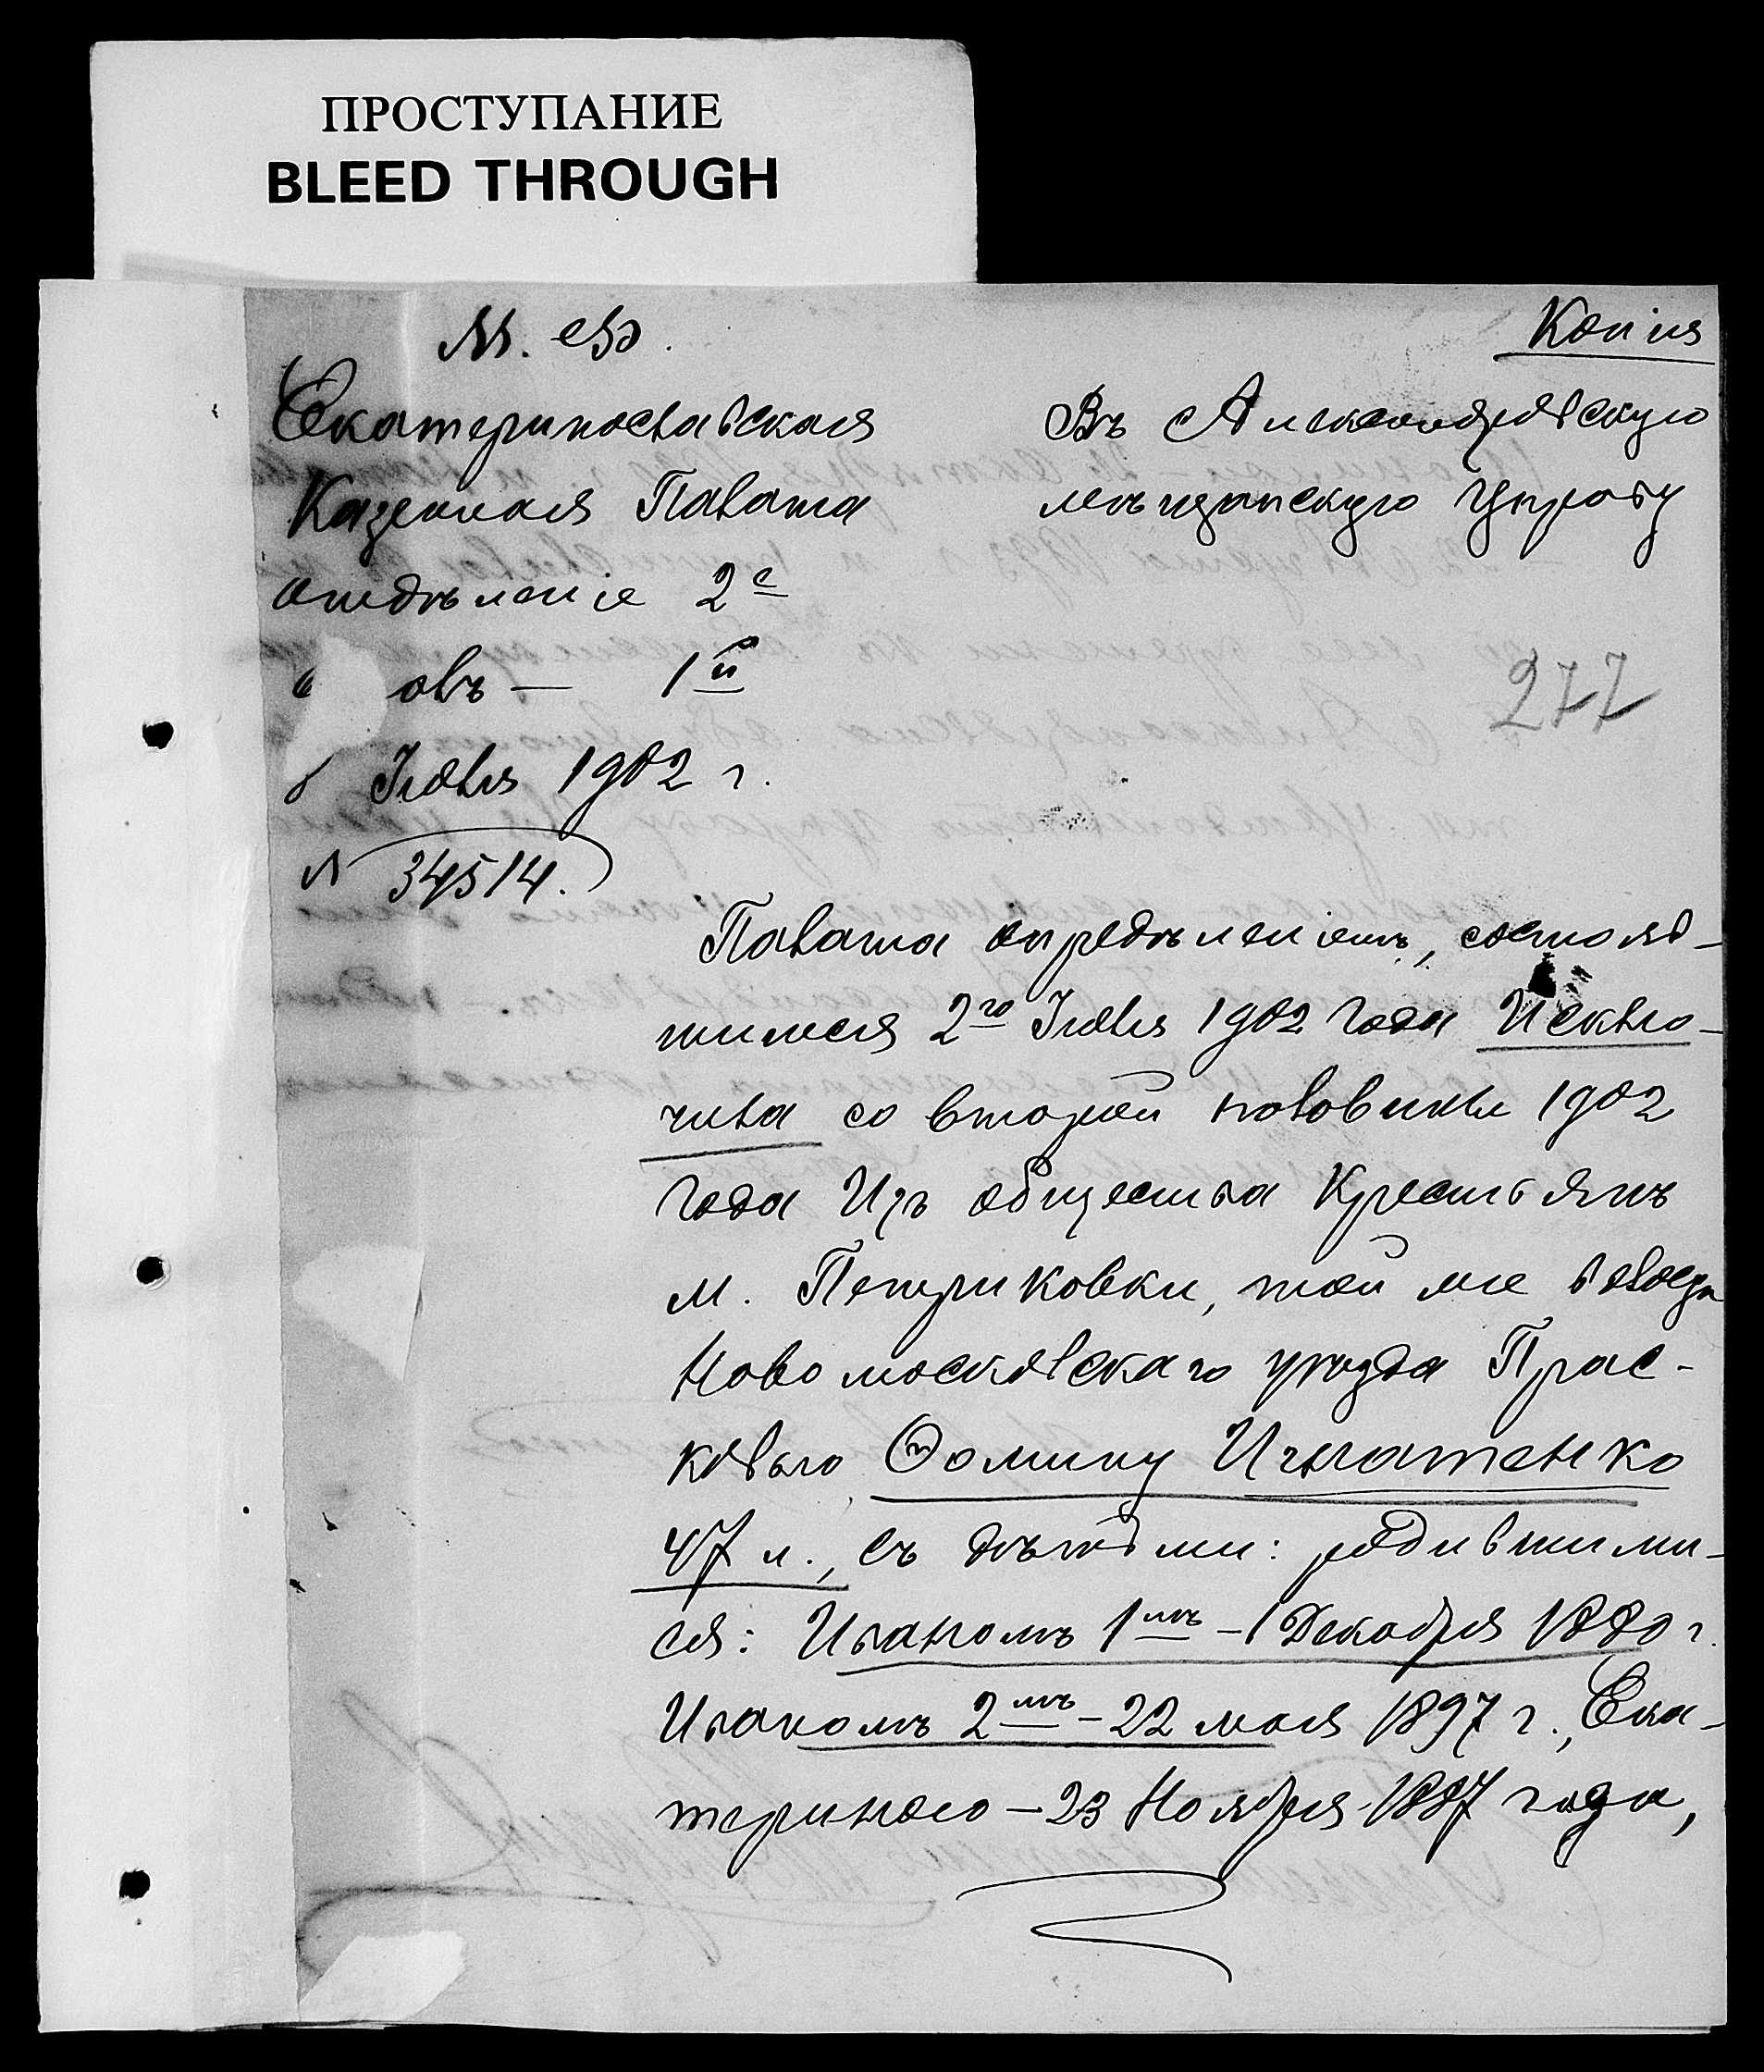 ПРОСТУПАНИЕ
BLEED THROUGH
Копія
М. Ф.
Екатеринославская
Казенная Палата
отдѣленіе 2е
" 1й
6 Іюля 1902 г.
№ 34514.
Въ Александровскую
мѣщанскую Управу
277
Палата опредѣленіемъ, состояв-
шимся 2го Іюля 1902 года Исклю-
чила со второй половины 1902
года изъ общества крестьянъ
м. Петриковки, той же волости
Новомосковскаго уѣзда Прас-
ковью Ѳомину Игнатенко
47 л., съ дѣтьми: родившими-
ся: Иваномъ 1мъ - 1 Декабря 1880 г.
Иваномъ 2мъ - 22 мая 1897 г., Ека-
териною - 23 Ноября 1887 года,